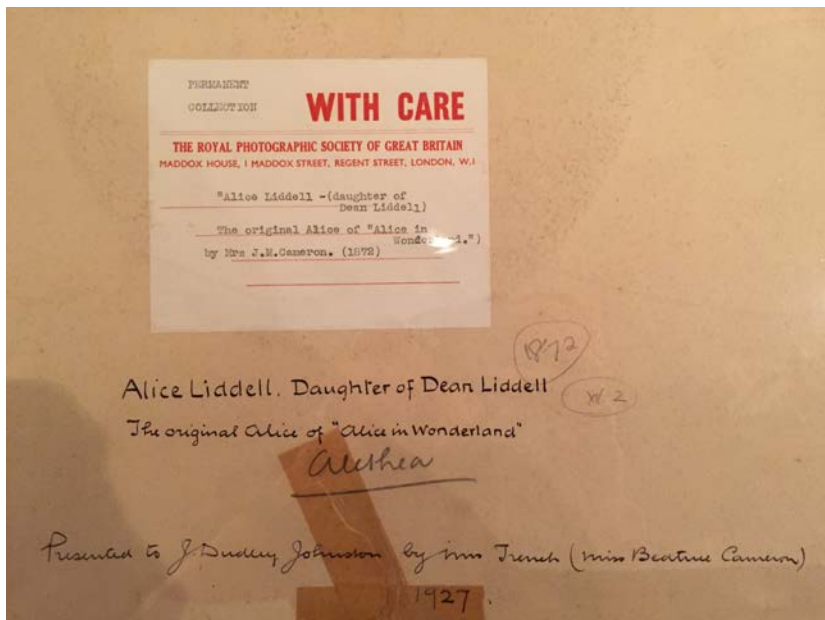 PERMANENT
COLLECTION
WITH CARE
THE ROYAL PHOTOGRAPHIC SOCIETY OF GREAT BRITAIN
MADDOX HOUSE, 1 MADDOX STREET, REGENT STREET, LONDON, W.1
"Alice Liddell -(daughter of
Dean Liddell)
The original Alice of "Alice in
Wonderland.")
by Mrs J.M.Cameron. (1872)
1872
Alice Liddell. Daughter of Dean Liddell
The original Alice of "Alice in Wonderland"
Alethea
Presented to J. Dudley Johnston by Mrs Trench (Miss Beatrice Cameron)
1927.